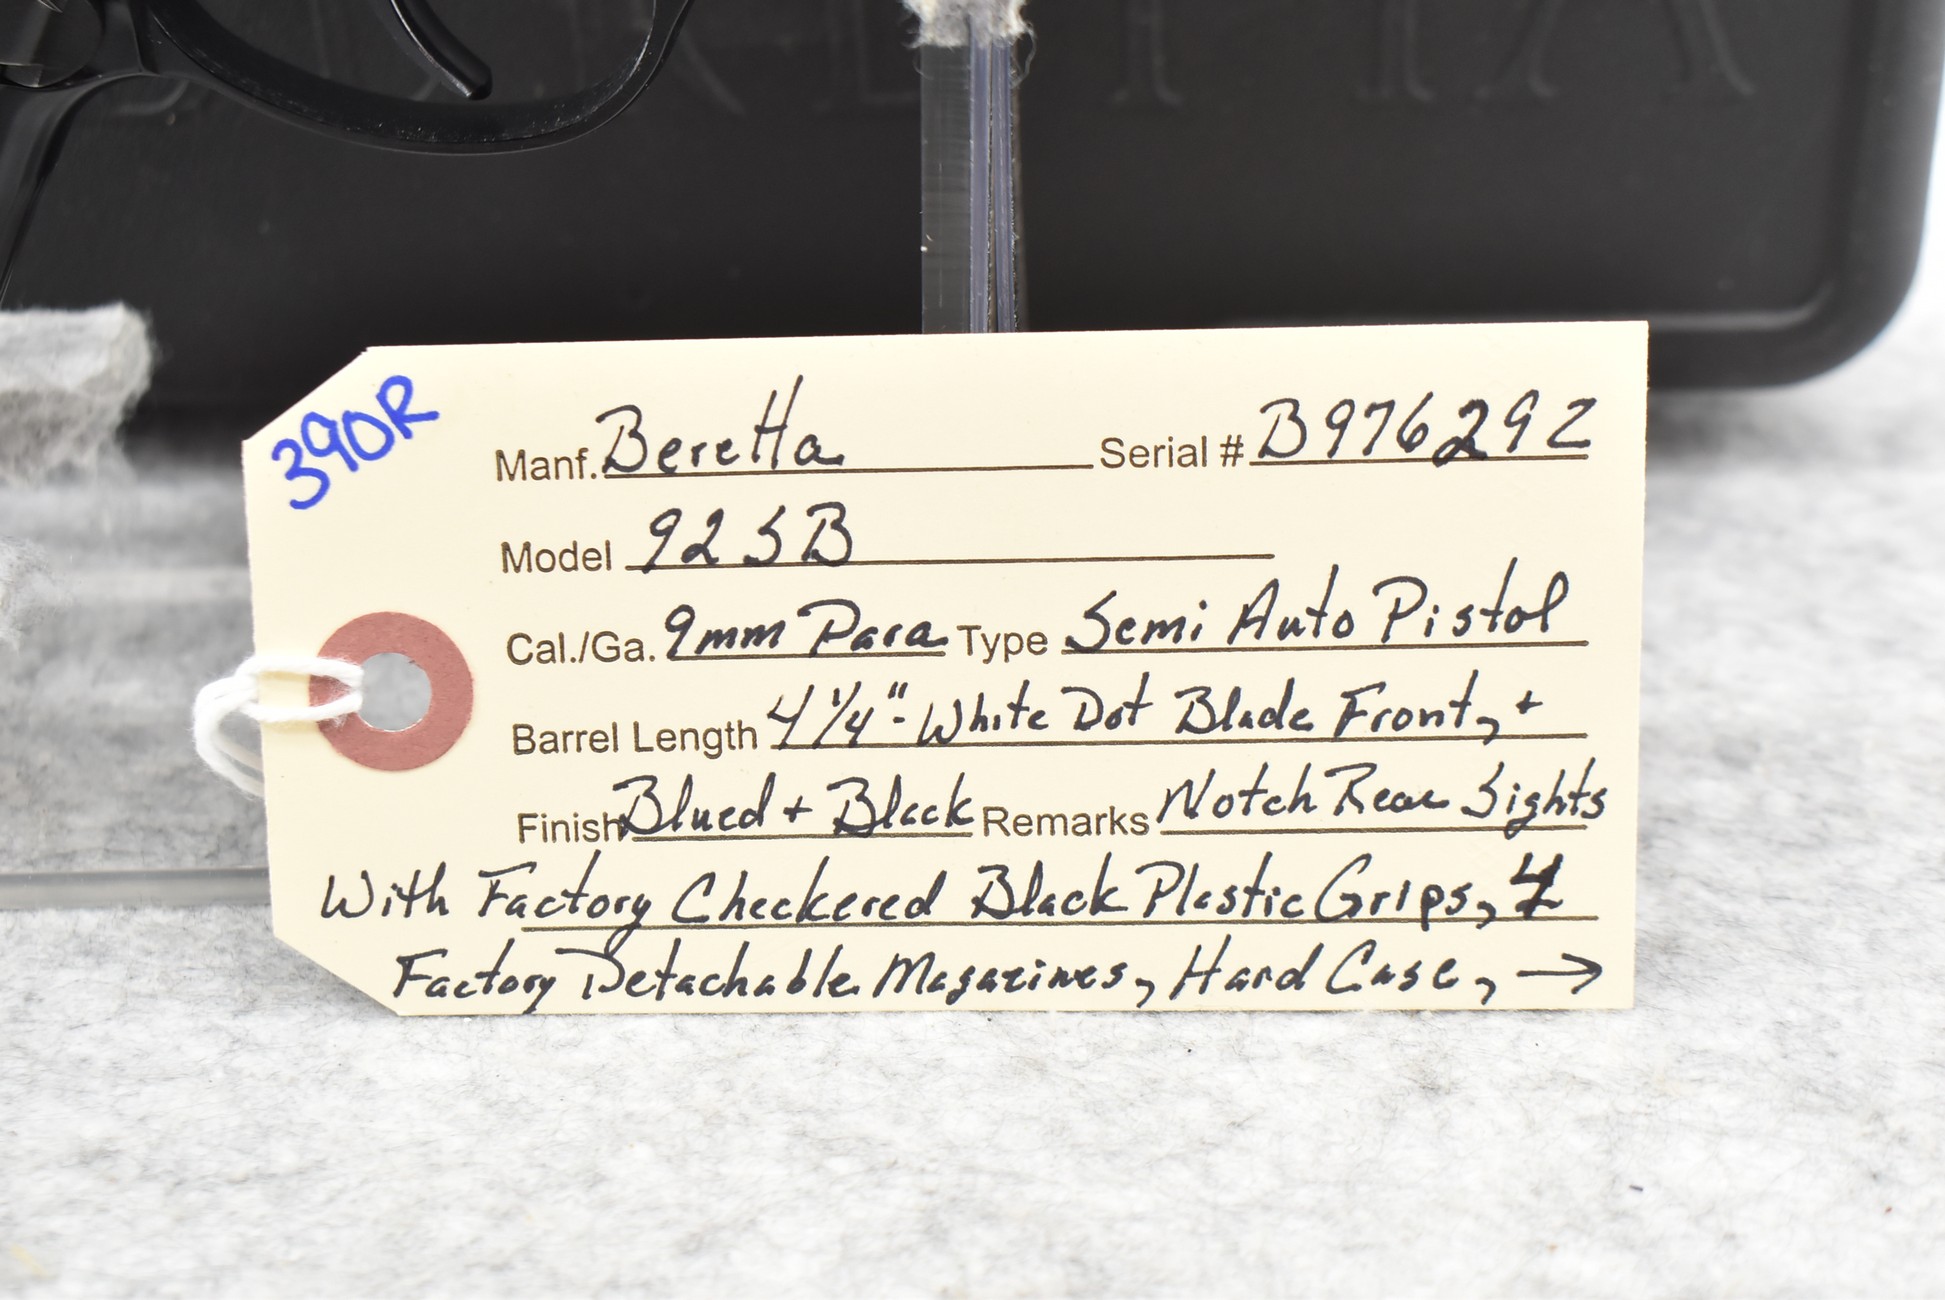 BERETTA
390R
Manf. Beretta Serial # B97629Z
Model 92SB
Cal./Ga. 9mm Para Type Semi Auto Pistol
Barrel Length 4 1/4" - White Dot Blade Front, +
Finish Blued + Black Remarks Notch Rear Sights
With Factory Checkered Black Plastic Grips,
Factory Detachable Magazines, Hard Case, →